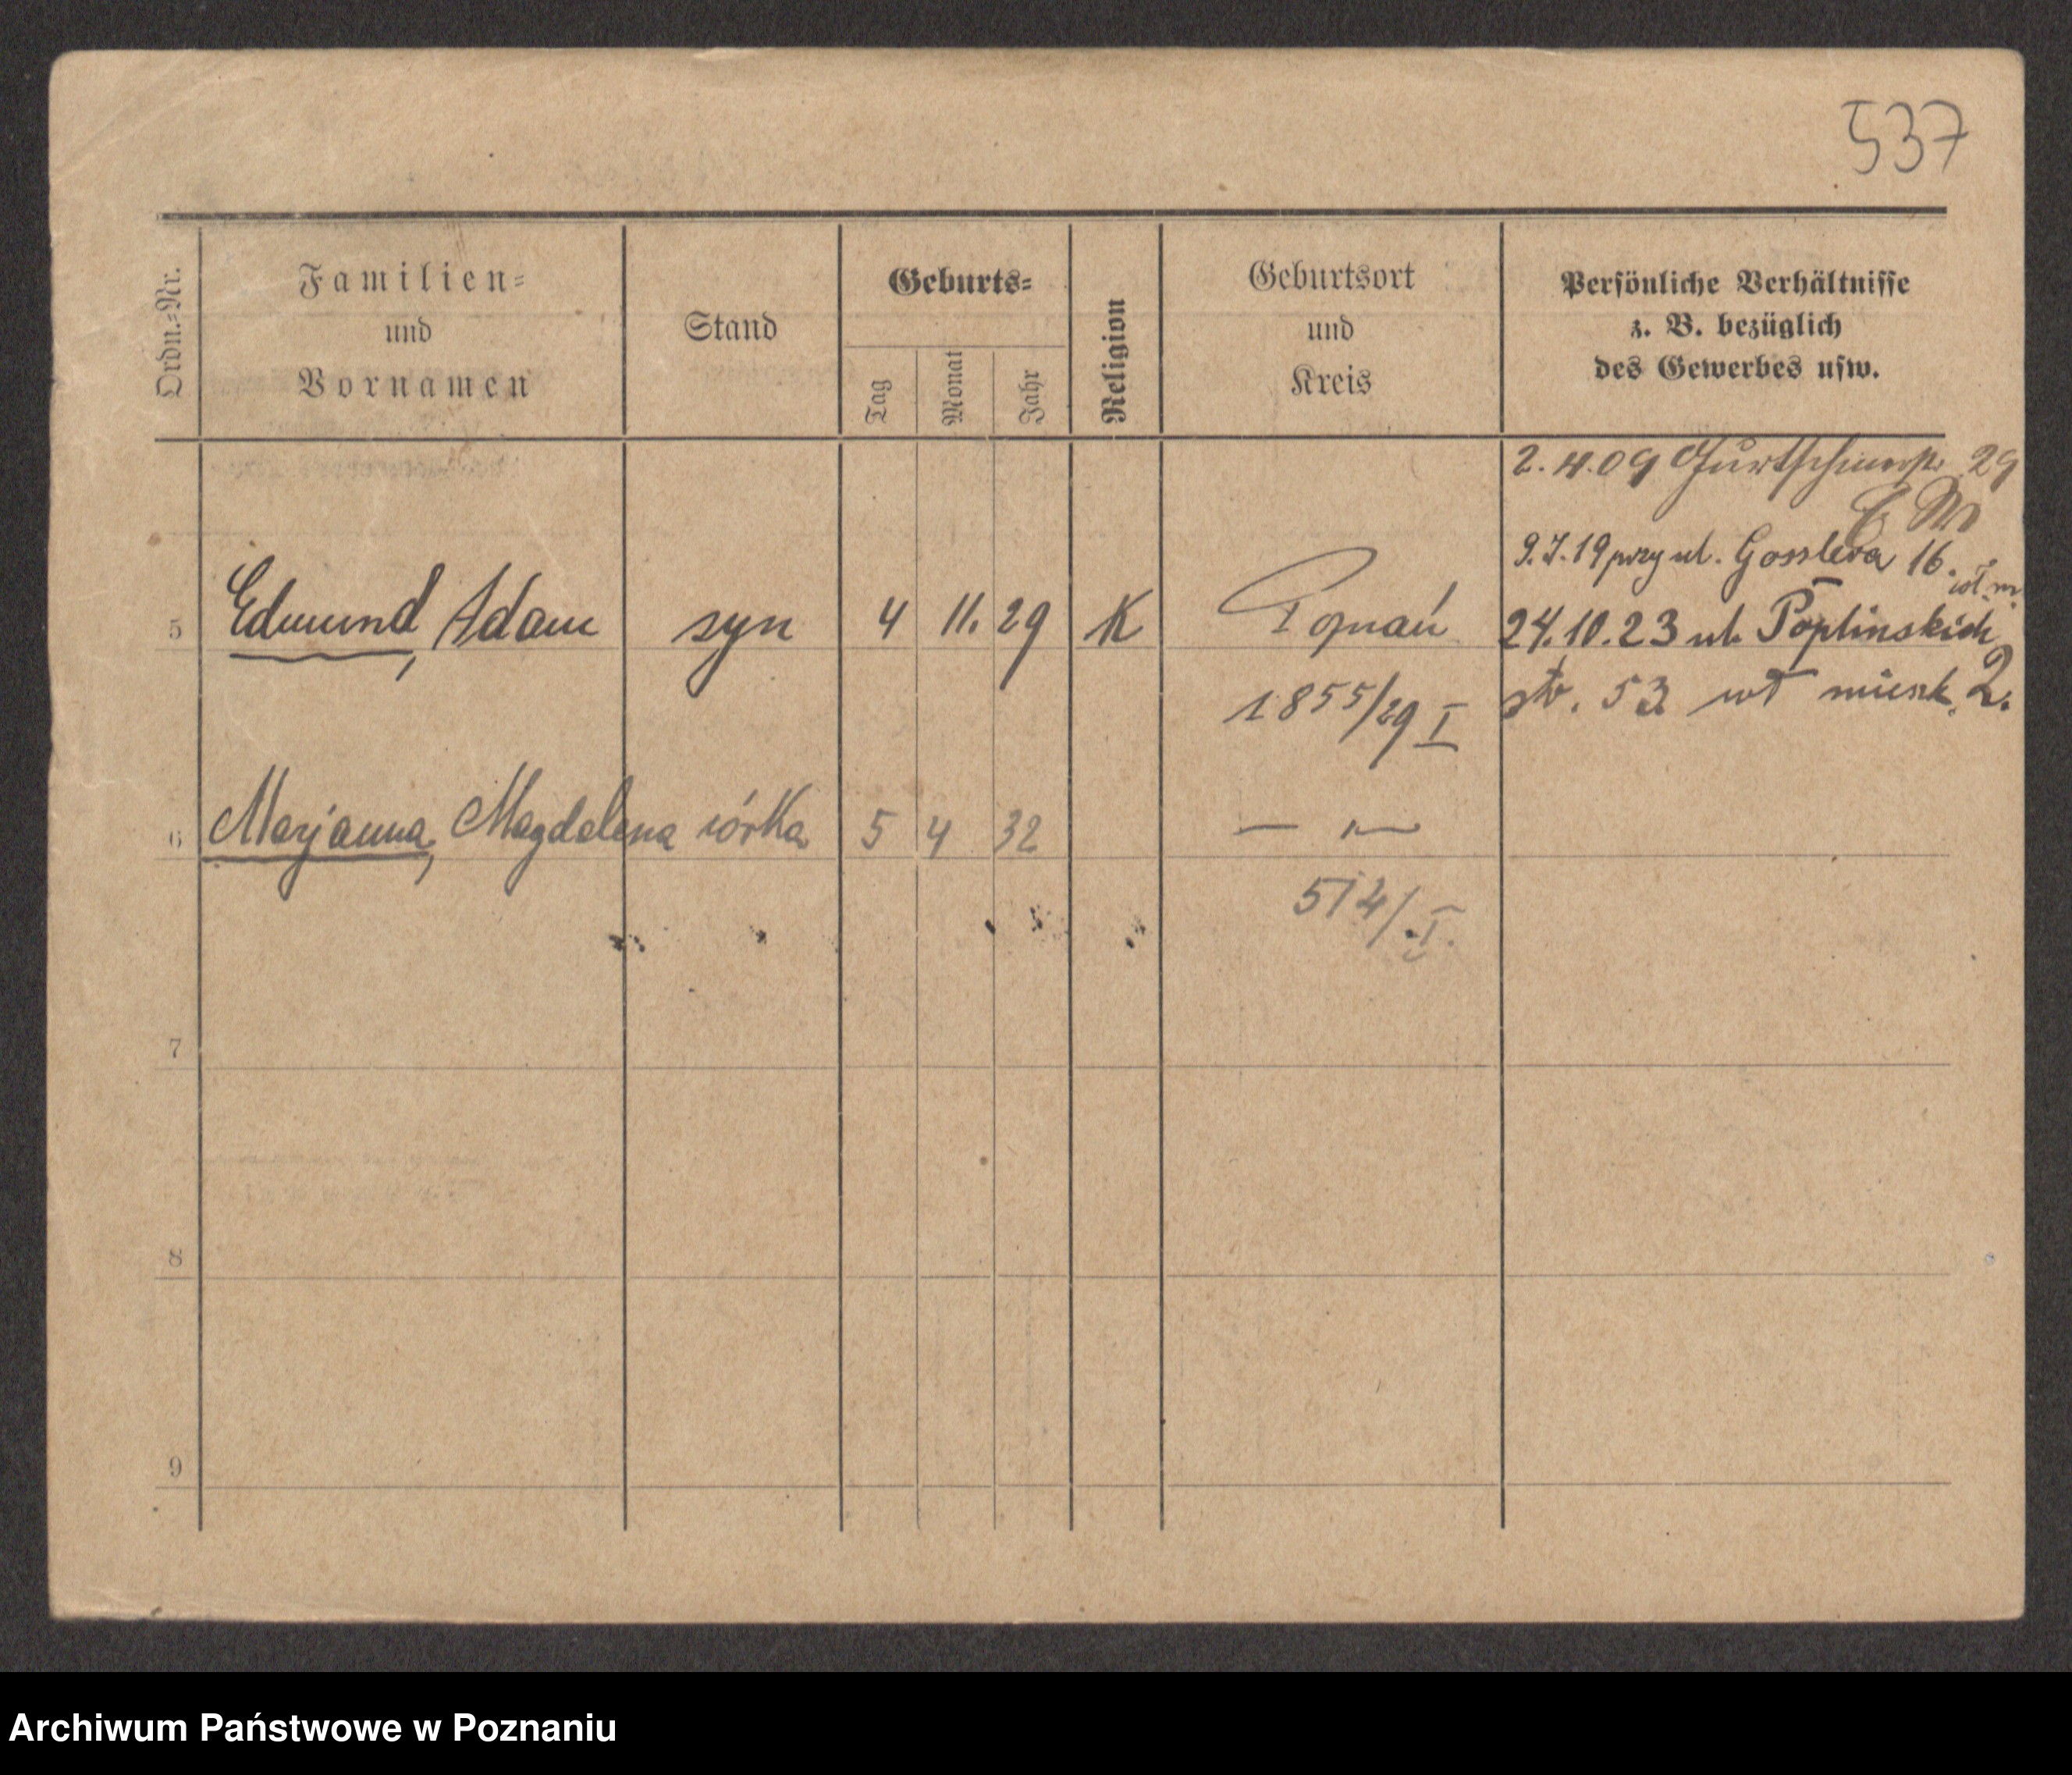 537
Ordn.-Nr.
Familien-
und
Vornamen
Stand
Geburts-
Tag
Monat
Jahr
Religion
Geburtsort
und
Kreis
Persönliche Verhältnisse
z. B. bezüglich
des Gewerbes usw.
2.4.09 Gurtschinerstr. 29
9.7.19 przy ul. Gosslera 16.
5 Edmund, Adam syn 4 11. 29 K Poznań 24.10.23 ul. Poplinskich
1855/29 I str. 53 wł mieszk. 2.
6 Marjanna, Magdalena córka 5 4 32 — " —
514/I.
7
8
9
Archiwum Państwowe w Poznaniu